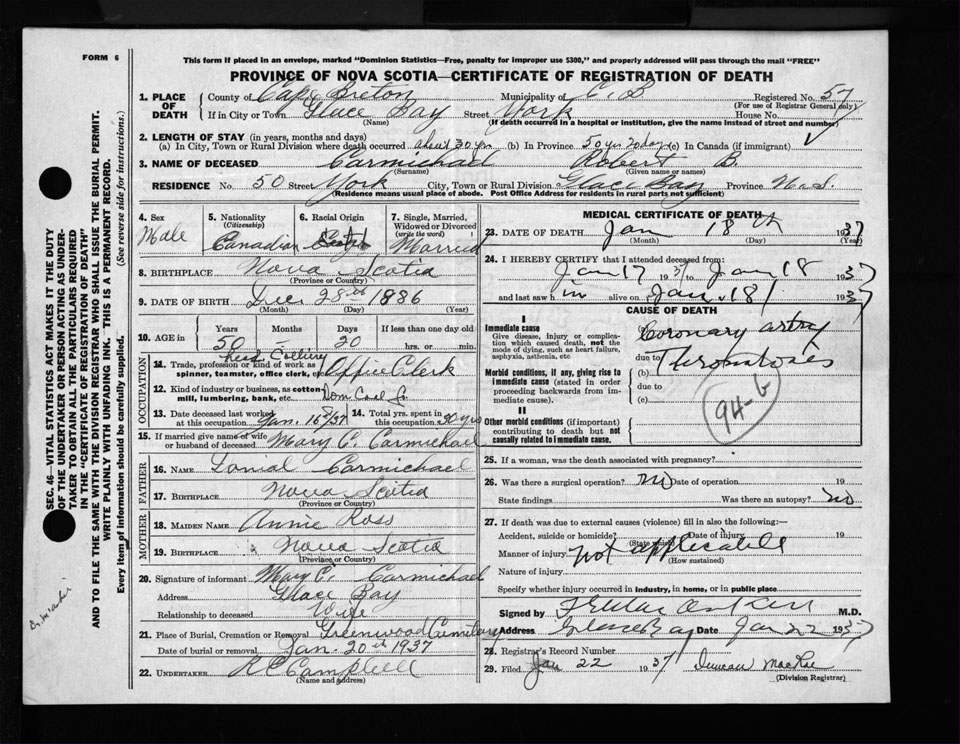 FORM 6
This form if placed in an envelope, marked "Dominion Statistics—Free, penalty for improper use $300," and properly addressed will pass through the mail "FREE"
PROVINCE OF NOVA SCOTIA—CERTIFICATE OF REGISTRATION OF DEATH
1. PLACE OF DEATH
County of Cape Breton Municipality of C. B Registered No. 57
(For use of Registrar General only)
If in City or Town Glace Bay Street York House No.
(Name) (If death occurred in a hospital or institution, give the name instead of street and number)
2. LENGTH OF STAY (in years, months and days)
(a) In City, Town or Rural Division where death occurred about 30 yrs (b) In Province 50 yrs 20 days (c) In Canada (if immigrant)
3. NAME OF DECEASED Carmichael Robert B.
(Surname) (Given name or names)
RESIDENCE No. 50 Street York City, Town or Rural Division Glace Bay Province N.S.
(Residence means usual place of abode. Post Office Address for residents in rural parts not sufficient)
4. Sex Male
5. Nationality (Citizenship) Canadian
6. Racial Origin Scotch
7. Single, Married, Widowed or Divorced (write the word) Married
8. BIRTHPLACE Nova Scotia
(Province or Country)
9. DATE OF BIRTH Dec. 28th 1886
(Month) (Day) (Year)
10. AGE in Years Months Days If less than one day old
50 – 20 hrs. or min.
OCCUPATION
11. Trade, profession or kind of work as spinner, teamster, office clerk, etc. Colliery Office Clerk
12. Kind of industry or business, as cotton-mill, lumbering, bank, etc. Dom Coal Co.
13. Date deceased last worked at this occupation Jan. 16/37
14. Total yrs. spent in this occupation 30 yrs
15. If married give name of wife or husband of deceased Mary C. Carmichael
FATHER
16. NAME Carmichael
17. BIRTHPLACE Nova Scotia
(Province or Country)
MOTHER
18. MAIDEN NAME Annie Ross
19. BIRTHPLACE Nova Scotia
(Province or Country)
20. Signature of informant Mary C. Carmichael
Address Glace Bay
Relationship to deceased Wife
21. Place of Burial, Cremation or Removal Greenwood Cemetery
Date of burial or removal Jan. 20th 1937
22. UNDERTAKER R C Campbell
(Name and address)
MEDICAL CERTIFICATE OF DEATH
23. DATE OF DEATH Jan 18th 1937
(Month) (Day) (Year)
24. I HEREBY CERTIFY that I attended deceased from:
Jan 17 1937 to Jan 18 1937
and last saw him alive on Jan 18 1937
CAUSE OF DEATH
I
Immediate cause
Give disease, injury or complication which caused death, not the mode of dying, such as heart failure, asphyxia, asthenia, etc
Morbid conditions, if any, giving rise to immediate cause (stated in order proceeding backwards from immediate cause).
II
Other morbid conditions (if important) contributing to death but not causally related to immediate cause.
(a) Coronary artery
due to
(b) Thrombosis
due to
(c)
94-b
25. If a woman, was the death associated with pregnancy?
26. Was there a surgical operation? No Date of operation 19
State findings Was there an autopsy? No
27. If death was due to external causes (violence) fill in also the following:—
Accident, suicide or homicide? Date of injury 19
(State which)
Manner of injury Not applicable
(How sustained)
Nature of injury
Specify whether injury occurred in industry, in home, or in public place
Signed by M.D.
Address Glace Bay Date Jan 22 1937
28. Registrar's Record Number
29. Filed Jan 22 1937 Duncan MacRae
(Division Registrar)
SEC. 46—VITAL STATISTICS ACT MAKES IT THE DUTY
OF THE UNDERTAKER OR PERSON ACTING AS UNDER-
TAKER TO OBTAIN ALL THE PARTICULARS REQUIRED
IN THE "CERTIFICATE OF REGISTRATION OF DEATH"
AND TO FILE THE SAME WITH THE DIVISION REGISTRAR WHO SHALL ISSUE THE BURIAL PERMIT.
WRITE PLAINLY WITH UNFADING INK. THIS IS A PERMANENT RECORD.
Every item of information should be carefully supplied. (See reverse side for instructions.)